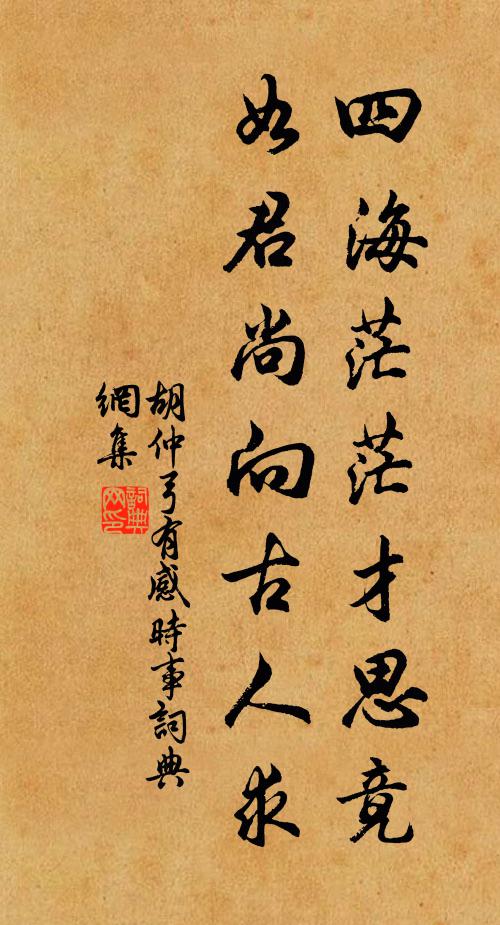 四海茫茫才思竟
如君尚向古人求
胡仲弓有感時事詞典
網集
詞典
网印